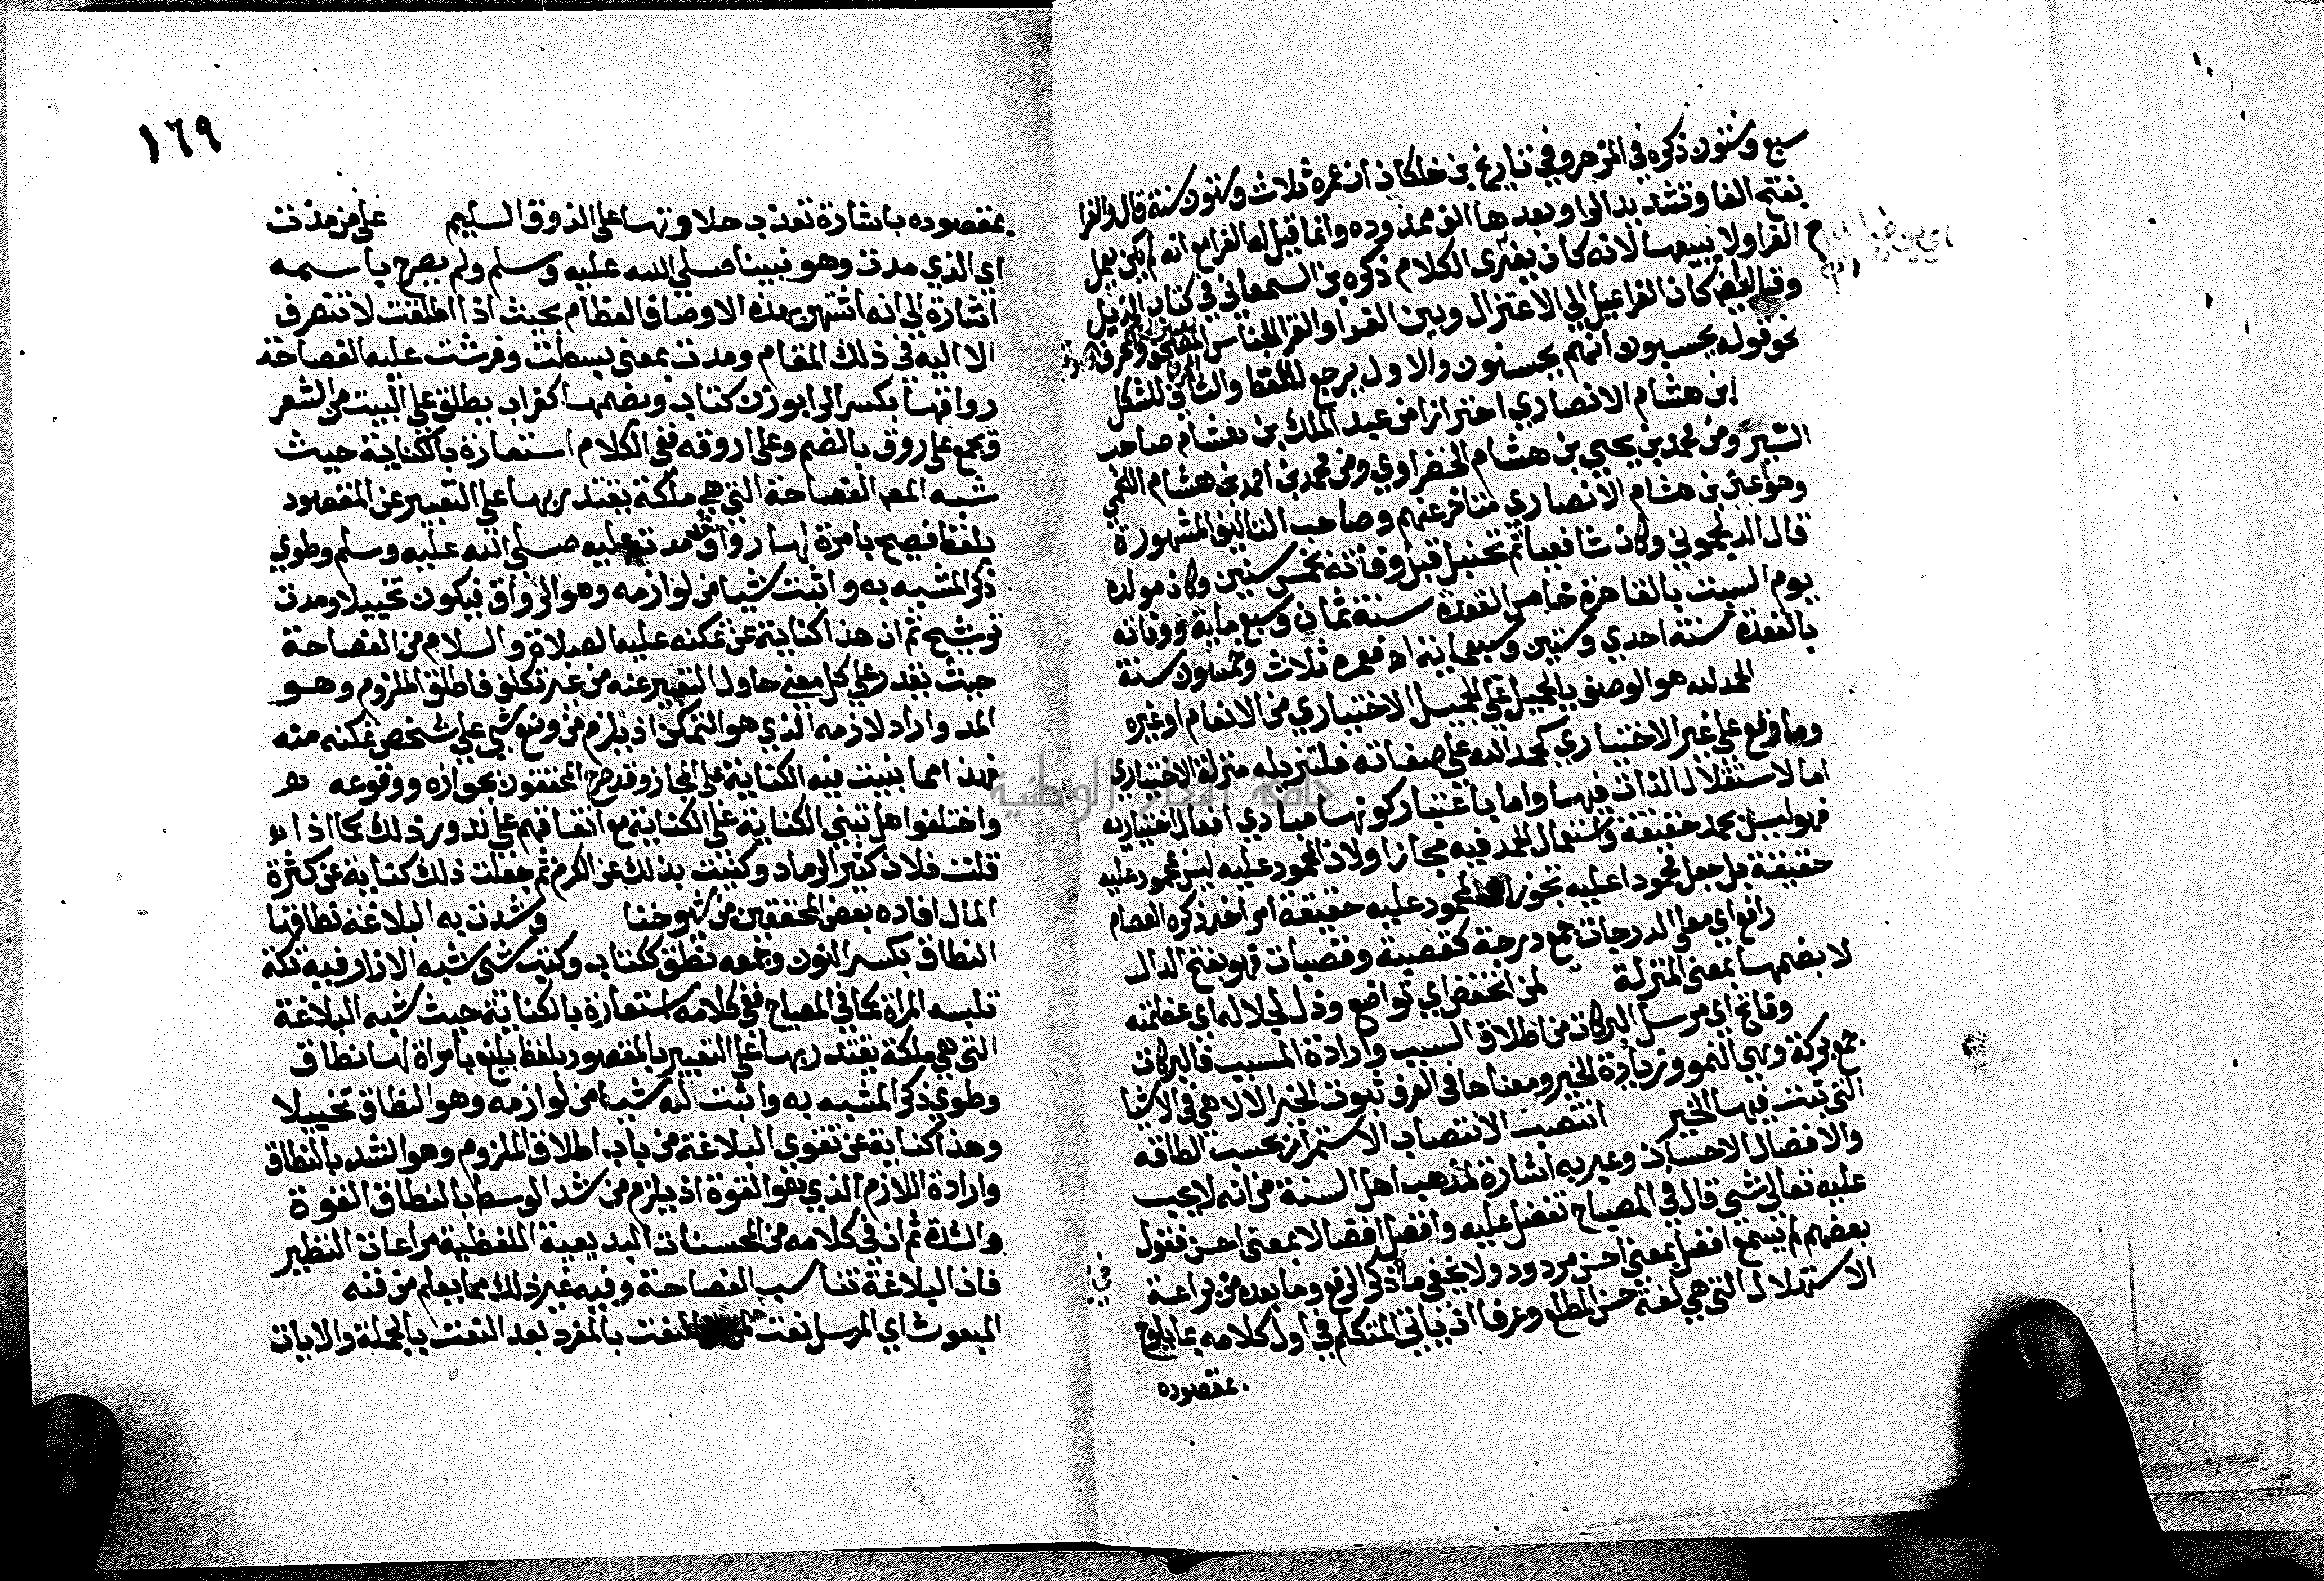 سبع وستون ذكره في المزهر وفي تاريخ بن خلكان ان عمره ثلاث وستون سنة قال والفرا
بفتح الفا وتشديد الرا وبعدها الف ممدوده وانما قيل له الفرا مع انه لم يكن يعمل
الفرا ولا يبيعها لانه كان يفترى الكلام ذكره بن السمعاني في كتاب الذيل
وقيل كان الفرا يميل الي الاعتزال وبين القرا والفرا الجناس المصحف والمحرف
نحو قوله يحسبون انهم يحسنون والاول يرجع للنقط والثاني للشكل
ابن هشام الانصاري احترازا من عبد الملك بن هشام صاحب
السير ومن محمد بن يحيي بن هشام الخضراوي ومن محمد بن احمد بن هشام اللخمي
وهو اعني بن هشام الانصاري متاخر عنهم وصاحب التاليف المشهورة
قال الدلجموني وكان شافعيا ثم تحنبل قبل وفاته بخمس سنين وكان مولده
يوم السبت بالقاهرة خامس القعدة سنة ثمان وسبع ماية ووفاته
بالقعدة سنة احدي وستين وسبعماية اه فعمره ثلاث وخمسون سنة
الحمد لله هو الوصف بالجميل علي الجميل الاختياري من الانعام او غيره
وما وقع علي غير الاختياري كحمد الله علي صفاته فلتنزيله منزلة الاختياري
اما لاستقلال الذات فيها واما باعتبار كونها مبادي افعال اختياريه
فهو ليس بحمد حقيقة واستعمال الحمد فيه مجازا ولان المحمود عليه ليس محمود عليه
حقيقة بل جعل محمودا عليه تجوزا المحمود عليه حقيقة امر اخر ذكره العصام
رافع اي معلي الدرجات جمع درجة كقصبة وقصبات فهو بفتح الدال
لا بضمها بمعني المنزلة لمن انخفض اي تواضع وذل لجلاله اي عظمته
وفاتح اي مرسل البركات من اطلاق السبب وارادة المسبب فالبركات
جمع بركة وهي النمو وزيادة الخير ومعناها في العرف ثبوت الخير الالاهي في الاشيا
التي ثبت فيها الخير انتصبت الانتصاب الاستمرار بحسب الطاقه
والافضال الاحسان وعبر به اشارة لمذهب اهل السنة من انه لا يجب
عليه تعالي شي قال في المصباح تفضل عليه وافضل افضالا بمعني احسن فقول
بعضهم لم يسمع افضل بمعني احسن مردود ولا يخفي ما في ذكر الرفع وما بعده من براعة
الاستهلال التي هي لغة حسن المطلع وعرفا ان ياتي المتكلم في اول كلامه بما يلوح
بمقصوده
١٦٩
بمقصوده باشارة تعذب حلاوتها علي الذوق السليم علي من مدت
اي الذي مدت وهو نبينا صلي الله عليه وسلم ولم يصرح باسمه
اشارة الي انه اشتهر بهذه الاوصاف العظام بحيث اذا اطلقت لا تنصرف
الا اليه في ذلك المقام ومدت بمعني بسطت وفرشت عليه الفصاحة
رواقها بكسر الرا بوزن كتاب وبضمها كغراب يطلق علي البيت من الشعر
ويجمع علي روق بالضم وعلي اروقه ففي الكلام استعارة بالكناية حيث
شبه الفصاحة التي هي ملكة يقتدر بها علي التعبير عن المقصود
بلفظ فصيح بامرة لها رواق مدته عليه صلي الله عليه وسلم وطوي
ذكر المشبه به واثبت شيا من لوازمه وهو الرواق فيكون تخييلا ومدت
ترشيح ثم ان هذا كناية عن تمكنه عليه الصلاة والسلام من الفصاحة
حيث يقدر علي كل معني حاول التعبير عنه من غير تكلف فاطلق الملزوم وهو
المد واراد لازمه الذي هو التمكن اذ يلزم من وضع شي علي شخص تمكنه منه
فهذا مما بنيت فيه الكناية علي المجاز وقد صرح المحققون بجوازه ووقوعه
واختلفوا هل تبني الكناية علي الكناية مع اتفاقهم علي ندور ذلك كما اذا
قلت فلان كثير الرماد وكنيت بذلك عن الكرم ثم جعلت ذلك كناية عن كثرة
المال افاده بعض المحققين من شيوخنا وشدت به البلاغة نطاقها
النطاق بكسر النون وجمعه نطق ككتاب وكتب شي شبه الازار فيه تكة
تلبسه المراة كما في المصباح ففي كلامه استعارة بالكناية حيث شبه البلاغة
التي هي ملكة يقتدر بها علي التعبير بالمقصود بلفظ بليغ بامراة لها نطاق
وطوي ذكر المشبه به واثبت له شيا من لوازمه وهو النطاق تخييلا
وهذا كناية عن تقوي البلاغة من باب اطلاق الملزوم وهو الشد بالنطاق
وارادة اللازم الذي هو القوة اذ يلزم من شد الوسط بالنطاق القوة
والشدة ثم ان في كلامه من المحسنات البديعية اللفظية مراعات النظير
فان البلاغة تناسب الفصاحة وفيه غير ذلك مما يعلم من فنه
المبعوث اي المرسل نعت النعت بالمفرد بعد النعت بالجملة والايات